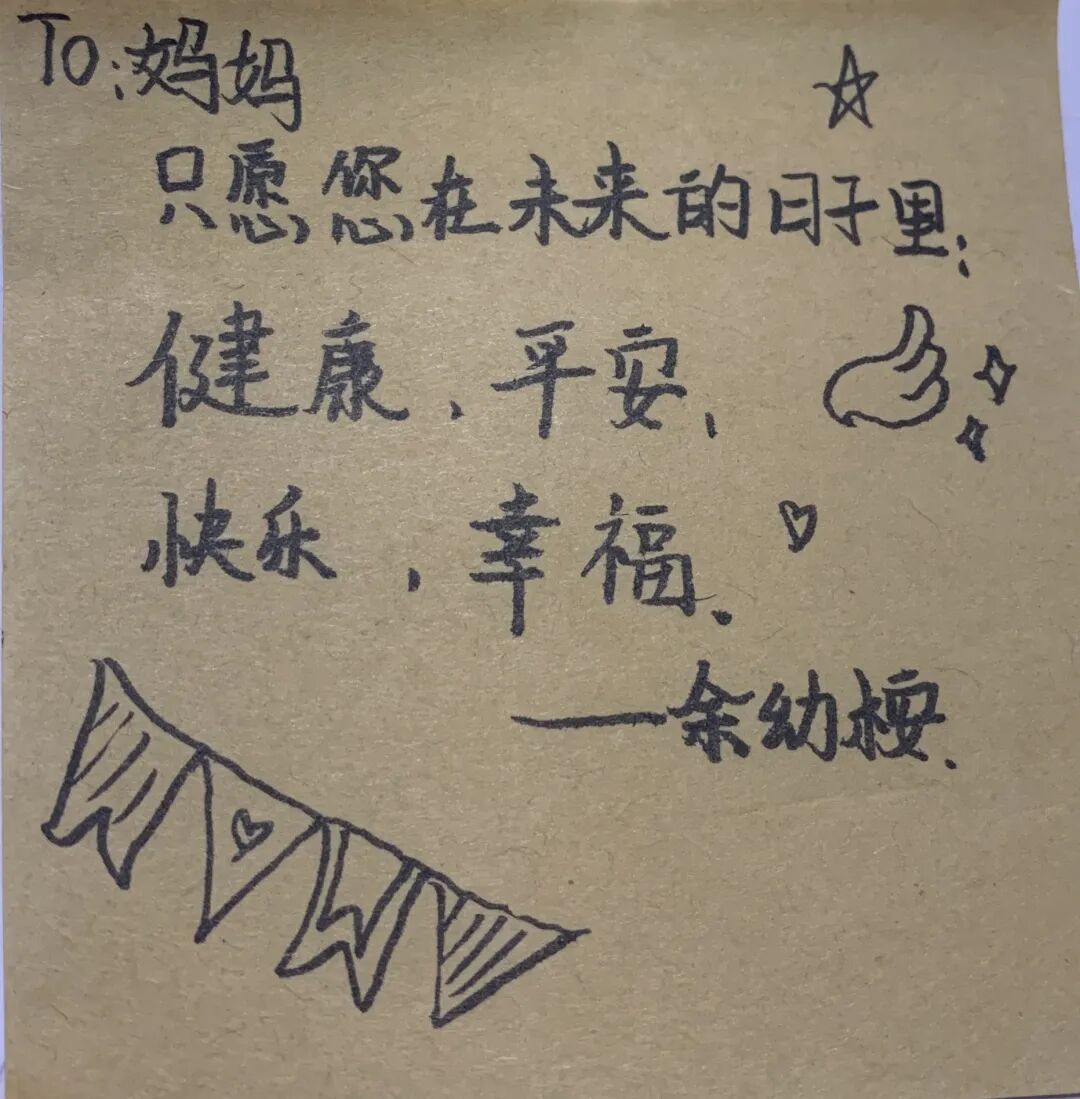 To:妈妈
只愿您在未来的日子里:
健康、平安、
快乐、幸福、
——余幼桉.